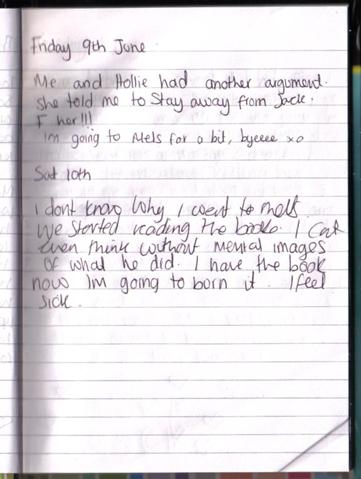 Friday 9th June.
Me and Hollie had another argument.
She told me to Stay away from Jack.
F her!!!
Im going to Mels for a bit, byeeee xo
Sat 10th
I dont know Why I went to mels.
We started reading the books. I cat
even think without mental images
of what he did. I have the book
now Im going to born it. I feel
sick.